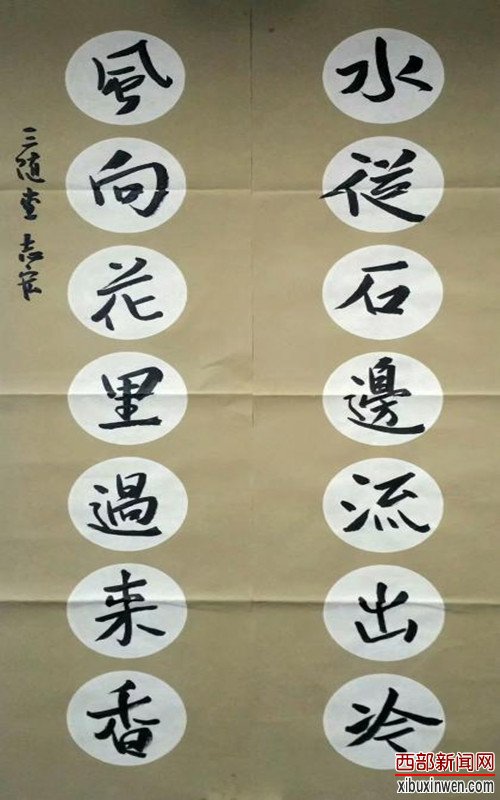 水從石邊流出冷
風向花里過来香
三随堂 志安
西部新闻网
xibuxinwen.com